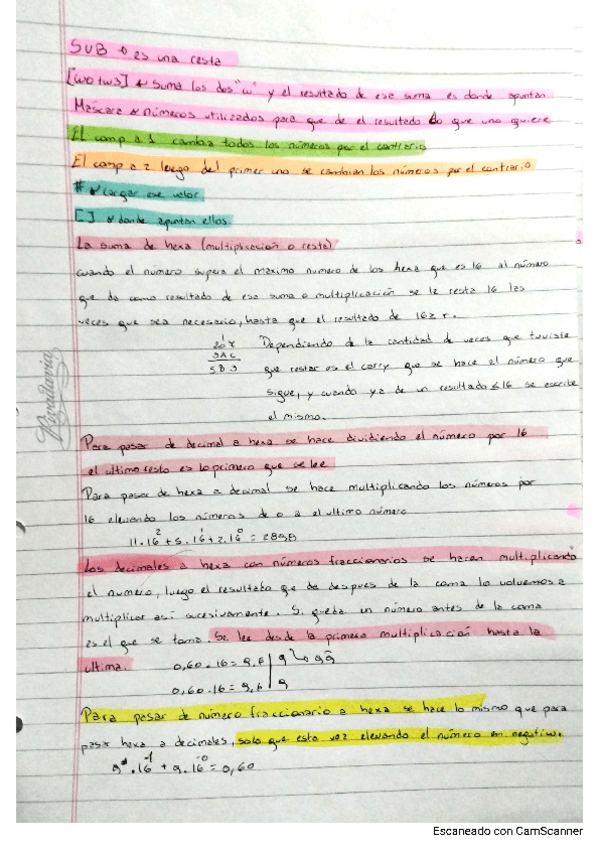 SUB → es una resta
[w0+w3] → Suma los dos "w" y el resultado de esa suma es donde apuntan
Máscara → números utilizados para que de el resultado lo que uno quiere
El comp a 1 cambia todos los números por el contrario
El comp a 2 luego del primer uno se cambian los números por el contrario
# → cargar ese valor
[ ] → donde apuntan ellos.
La suma de hexa (multiplicación o resta)
cuando el número supera el máximo numero de los hexa que es 16 al número
que da como resultado de esa suma o multiplicación se le resta 16 las
veces que sea necesario, hasta que el resultado de
Dependiendo de la cantidad de veces que tuviste
3AC
que restar es el carry que se hace el número que
sigue, y cuando ya de un resultado ≤16 se escribe
el mismo.
Paradavia
Para pasar de decimal a hexa se hace dividiendo el número por 16
el ultimo resto es lo primero que se lee
Para pasar de hexa a decimal se hace multiplicando los números por
16 elevando los números de 0 a el ultimo número
11.16² + 5.16¹ + 2.16⁰ = 2898
Los decimales a hexa con números fraccionarios se haran multiplicando
el numero, luego el resultado que da despues de la coma lo volvemos a
multiplicar asi sucesivamente. Si queda un número antes de la coma
es el que se toma. Se lee desde la primera multiplicación hasta la
ultima.
0,60.16 = 9,6 | 9
0,60.16 = 9,6 | 9
Para pasar de número fraccionario a hexa se hace lo mismo que para
pasar hexa a decimales, solo que esta vez elevando el número en negativo.
= 0,60
Escaneado con CamScanner